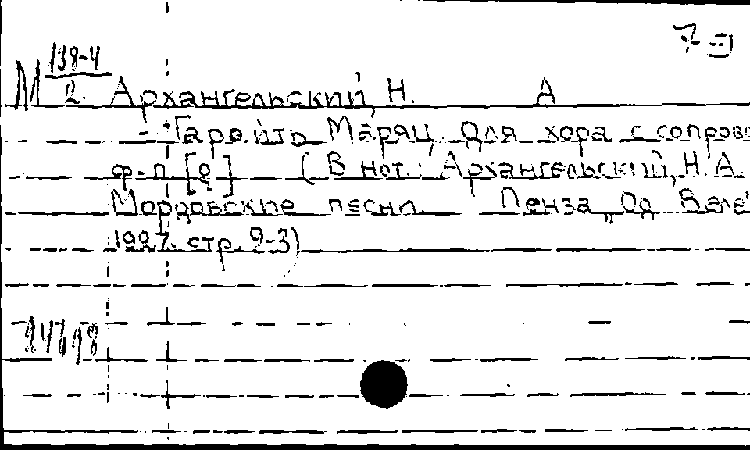 7-
М 138-4/2 Архангельский, Н. А
Марац. Для хора с сопрово
ф-п. [2] (В нот.: Архангельский, Н.А.
Мордовские песни. Пенза, "Од Веле"
1927. стр. 2-3)